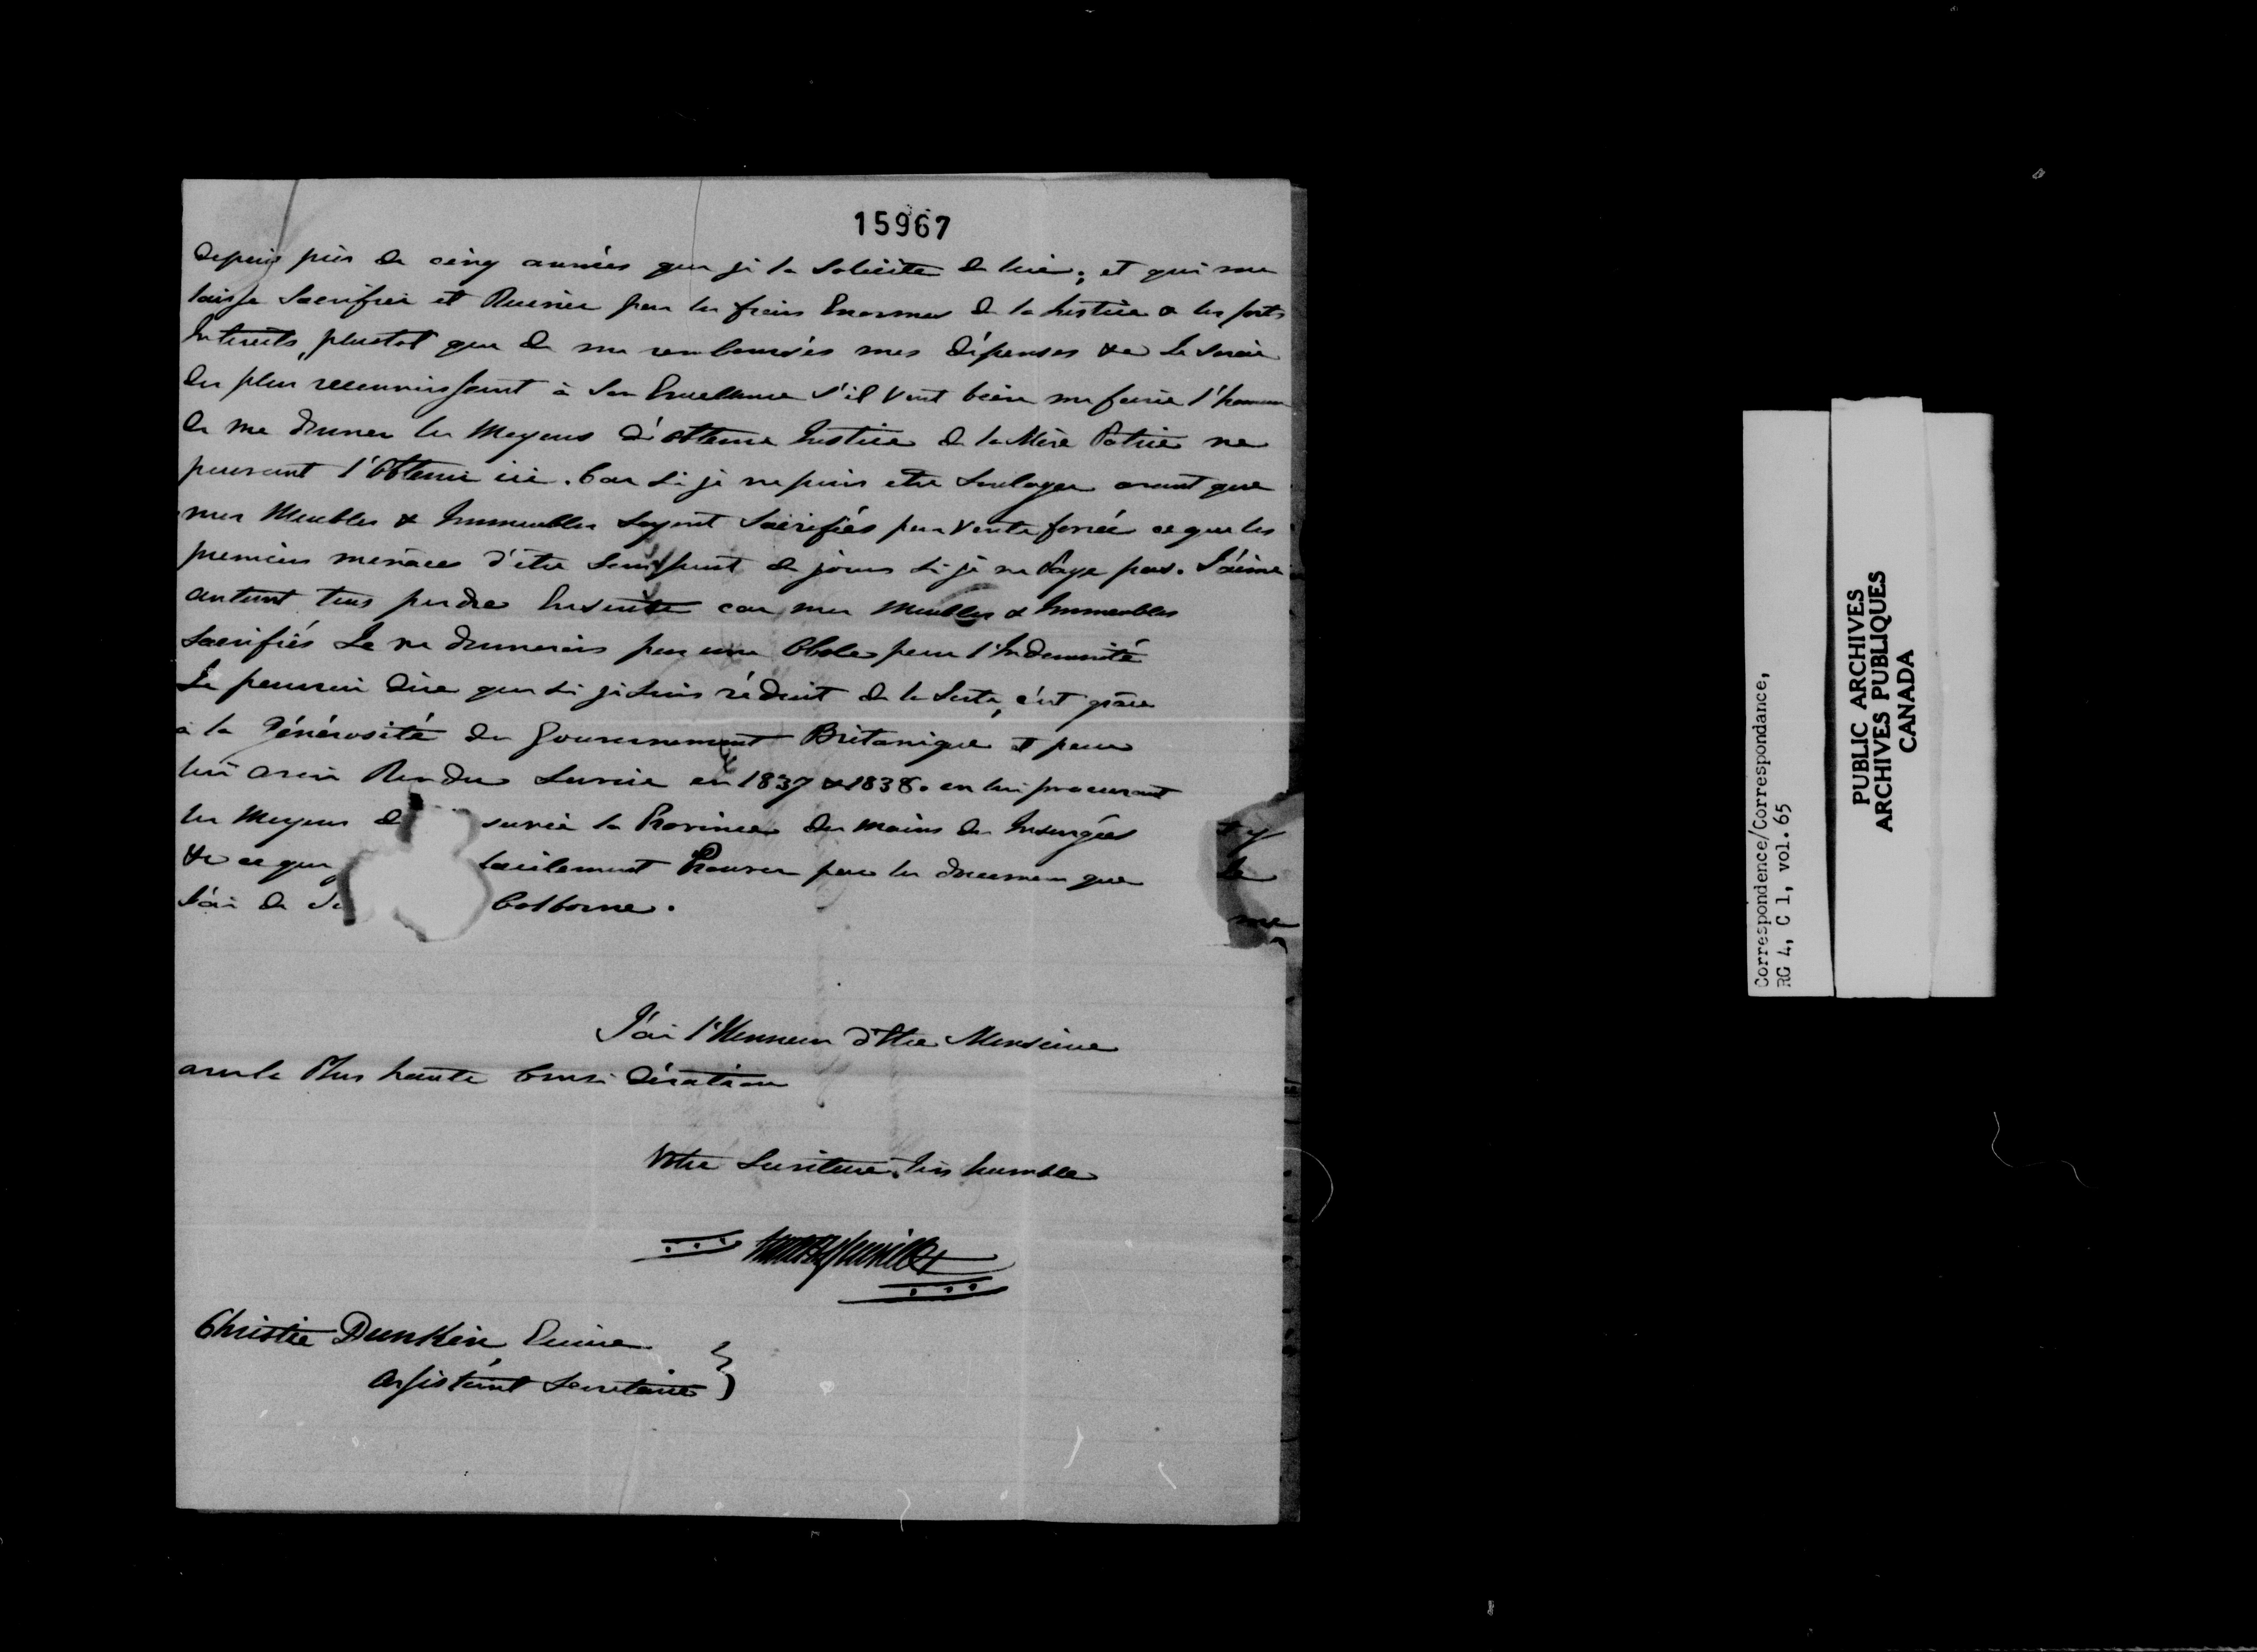 15967
depuis près de cinq années que je la solicite de lui; et qui me
laisse Sacrifier et Ruiner par les frais Enormes de la Justice & les forts
Interêts, plustot que de me remboursés mes dépenses &c Je serai
des plus reconnaissant à Son Excellence s'il veut bien me faire l'honneur
de me donner les Moyens d'obtenir Justice de la Mère Patrie ne
pouvant l'Obtenir ici. Car si je ne puis etre Soulager avant que
mes Meubles & Immeubles Soyent Sacrifiés par Vente forcée ce que les
premiers menacé d'être sous peut de jours si je ne Paye pas. J'aime
autant tous perdre Ensuite car mes Meubles & Immeubles
Sacrifiés Je ne donnerais pas une Obole pour l'Indemnité
Je pourrai dire que si je suis réduit de la Sorte, c'est grâce
à la Générosité du Gouvernement Britanique et pour
lui avoir Rendu Service en 1837 & 1838. en lui procurant
les Moyens de suver la Province des mains des Insurgées
&c ce que facilement Prouver par les documens que
J'ai de Colborne.
J'ai l'Honneur d'Etre Monsieur
avec la Plus haute Consideration
Votre Serviteur très humble
Christie Dunkin
Assistant Secretaire
Correspondence/Correspondance,
RG 4, C 1, vol. 65
PUBLIC ARCHIVES
ARCHIVES PUBLIQUES
CANADA